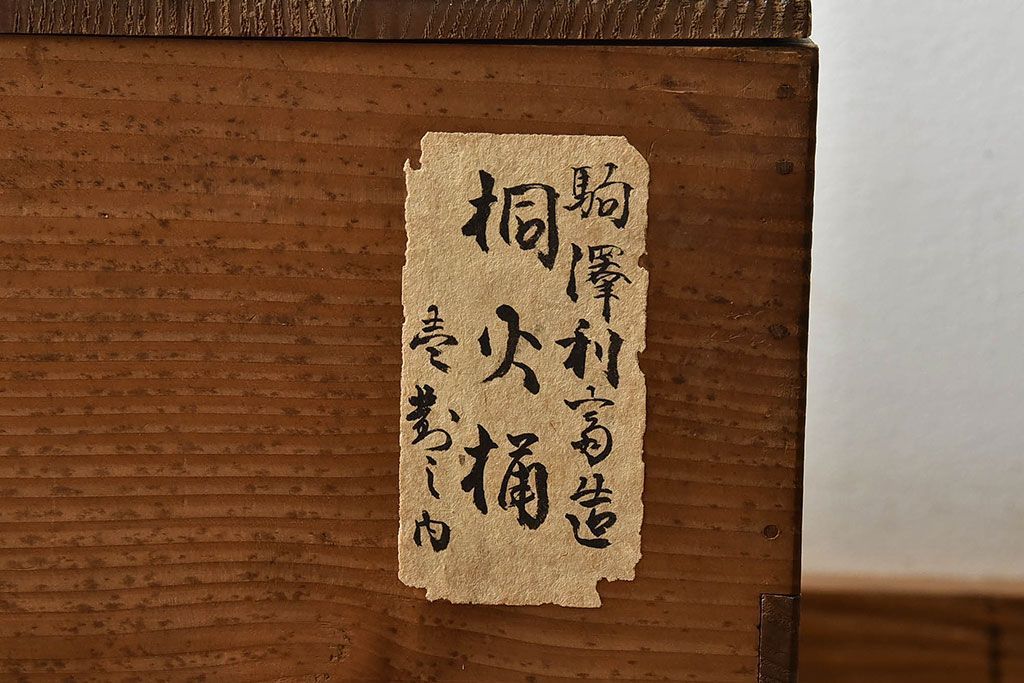 駒澤利斎造
桐火桶
壱對之内